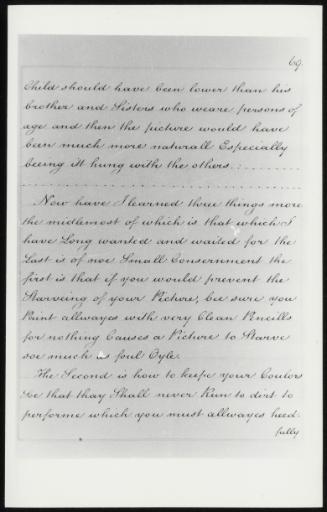 69.
Child should have been lower than his
brother and Sisters who weare persons of
age and then the picture would have
been much more naturall Especially
beeing itt hung with the others.:
Now have I learned three things more
the midlemost of which is that which I
have Long wanted and waited for the
Last is of noe Small Consernment the
first is that if you would prevent the
Starveing of your Picture, bee sure you
Paint allwayes with very Clean Pencills
for nothing Causes a Picture to Starve
soe much as foul Oyle.
The Second is how to keepe your Coulors
soe that thay Shall never Run to dirt to
performe which you must allwayes heed-
fully